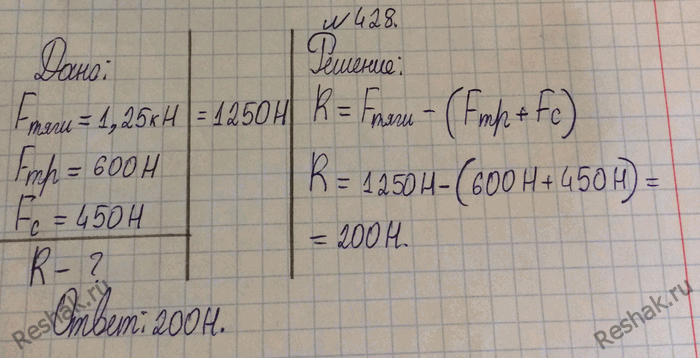 №428.
Дано:
Fтяги = 1,25кН = 1250Н
Fтр = 600Н
Fс = 450Н
R - ?
Решение:
R = Fтяги - (Fтр + Fс)
R = 1250Н - (600Н + 450Н) =
= 200Н.
Ответ: 200Н.
Reshak.ru
Reshak.ru